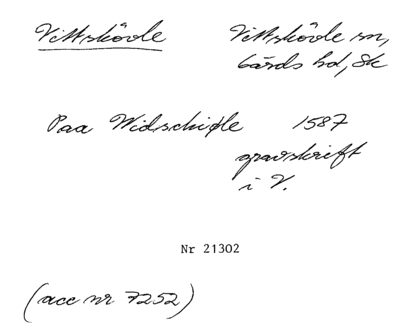 Vittskövle Vittskövle sn,
Gärds hd, Sk
Paa Widschiøle 1587
gravskrift
i V.
Nr 21302
(acc nr 7252)